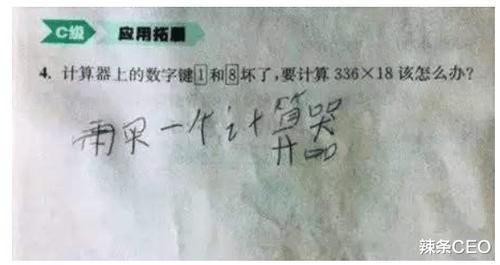 C级 应用拓展
4. 计算器上的数字键1和8坏了,要计算 336×18 该怎么办?
再买一个计算器
辣条CEO